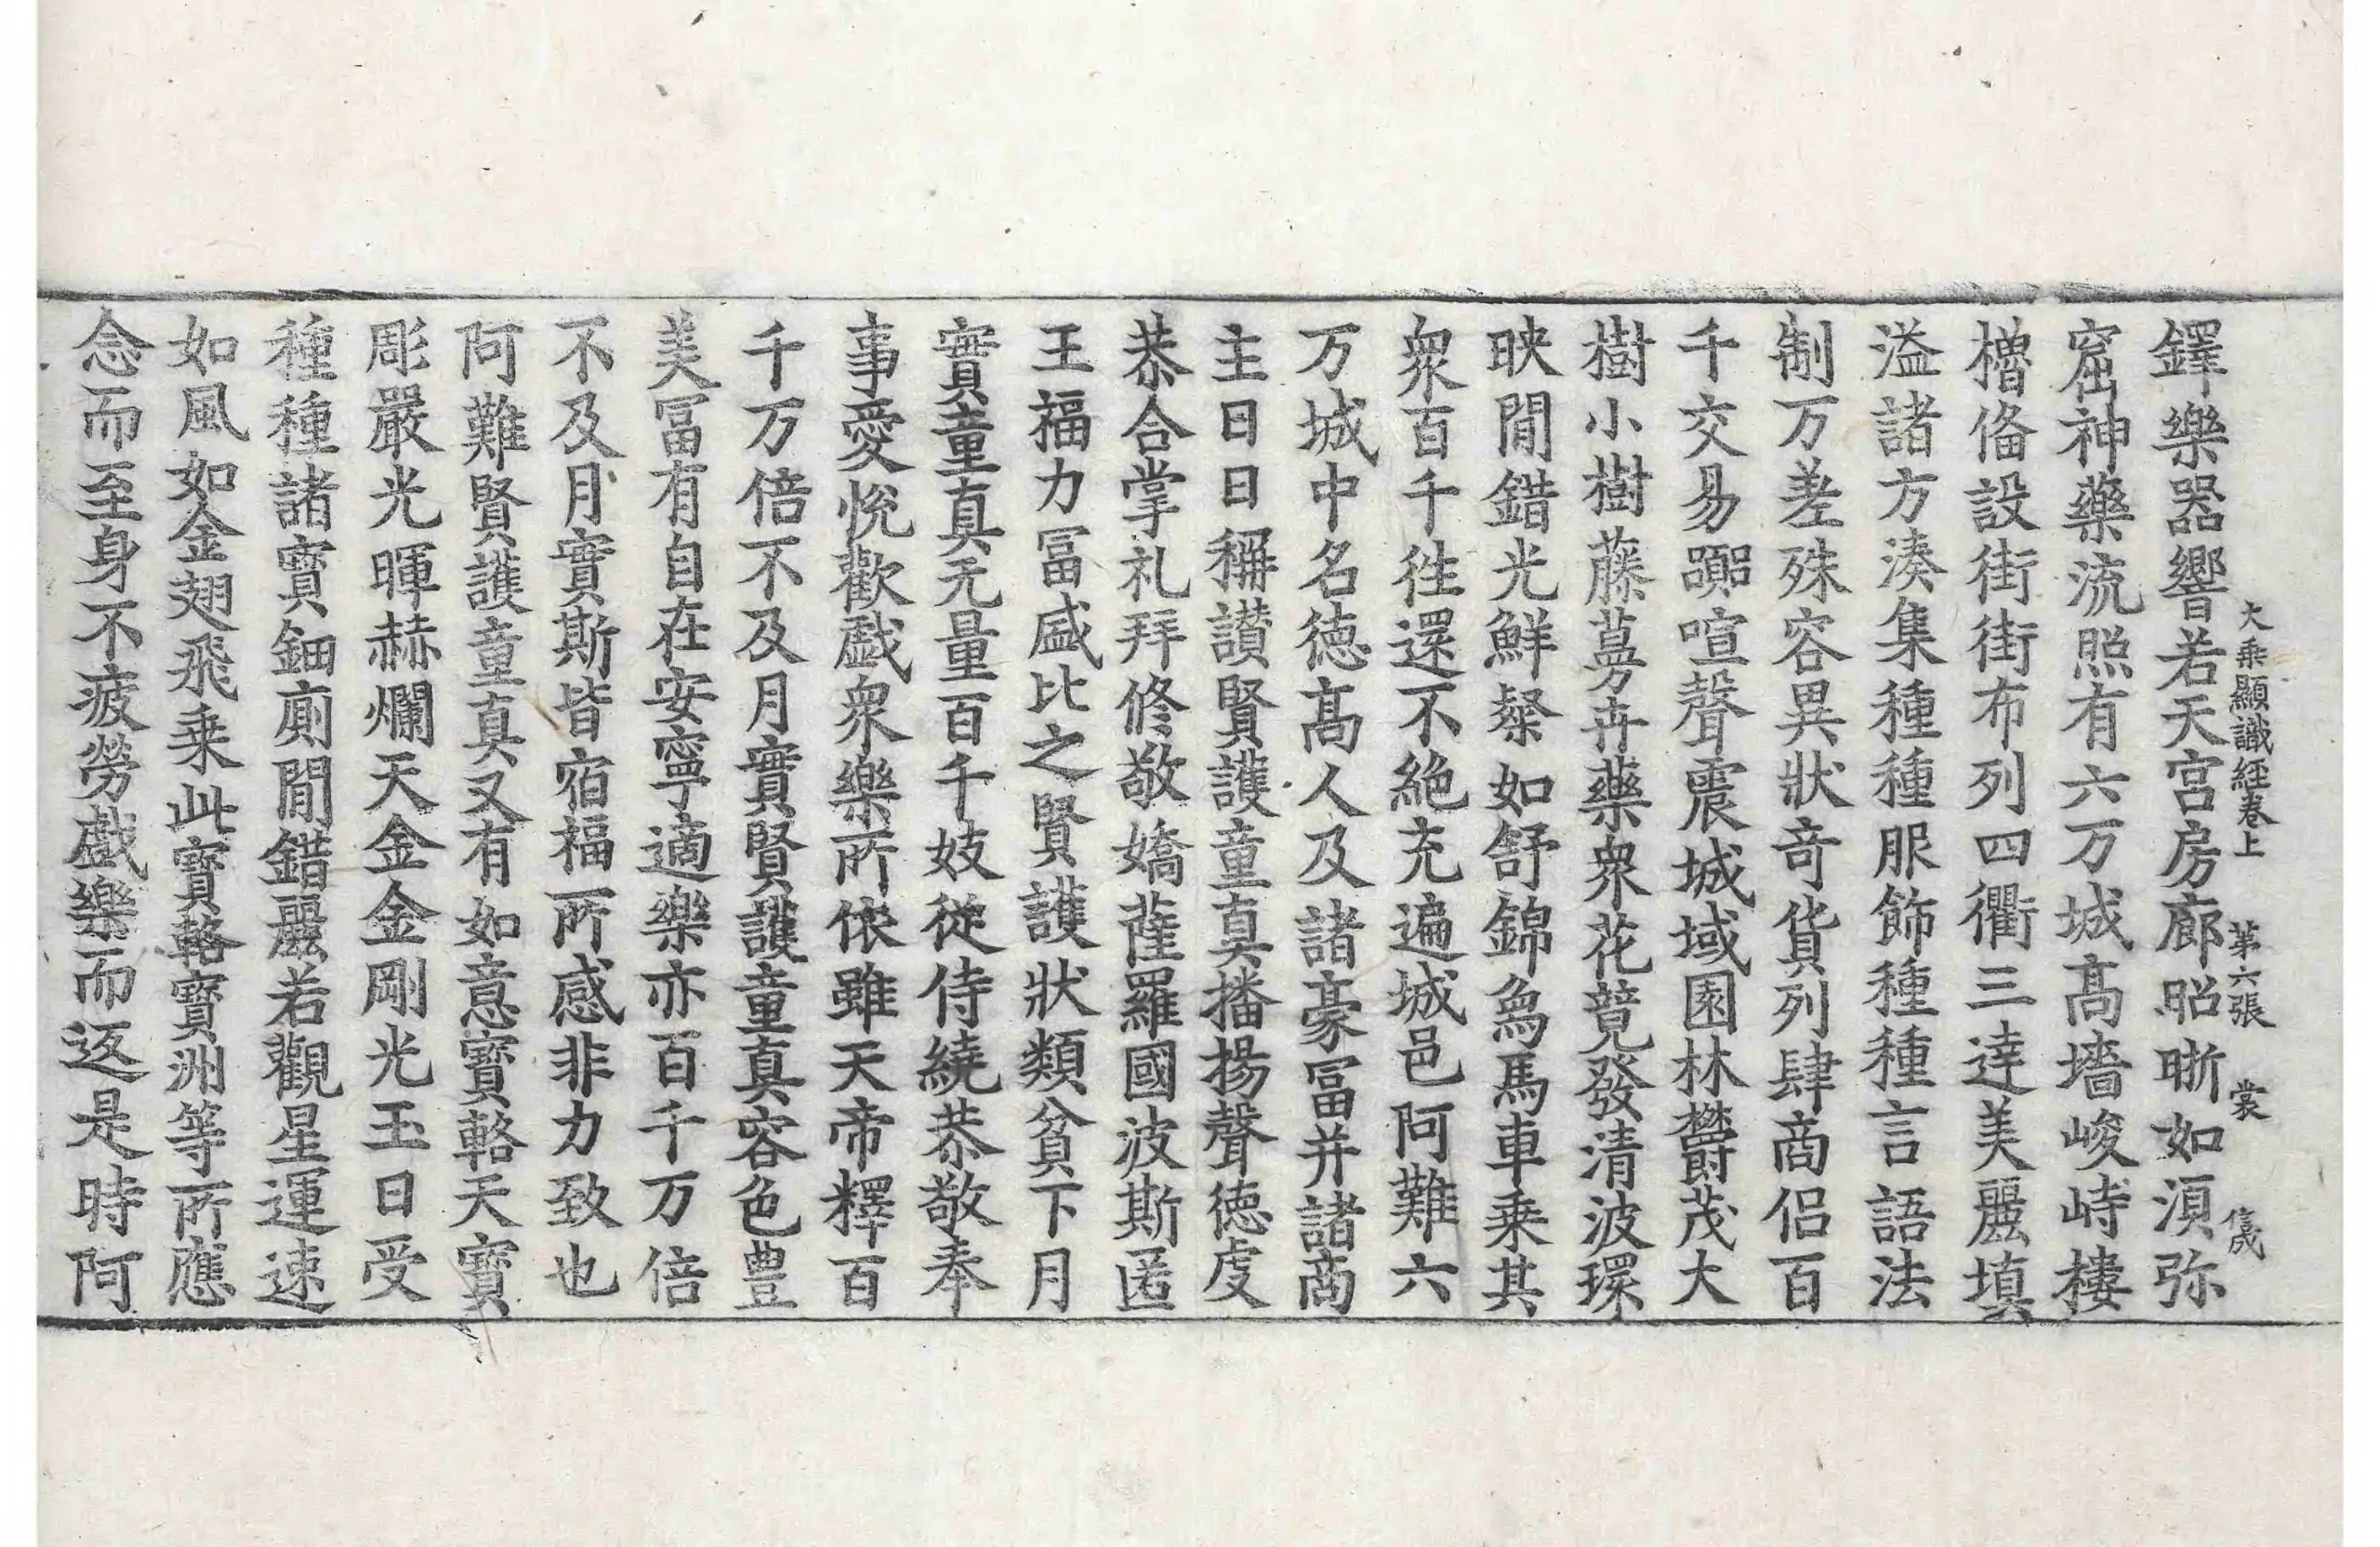 大乗顯識経卷上　第六張　裳　信成
鐸樂器響若天宫房廊昭晣如湏弥
窟神藥流照有六万城髙墻峻峙樓
櫓俻設街街布列四衢三逹美麗填
溢諸方湊集種種服飾種種言語法
制万差殊容異狀竒貨列肆商侣百
千交易嚻喧聲震城域園林欝茂大
樹小樹藤蔓芳卉藥衆花競發清波環
映閒錯光鮮粲如舒錦烏馬車乗其
衆百千徃還不絶充遍城邑阿難六
万城中名徳髙人及諸豪冨并諸商
主日日稱讃賢護童真播揚聲徳虔
恭合掌礼拜修敬嬌薩羅國波斯匿
王福力冨盛比之賢護狀類貧下月
實童真无量百千妓從侍繞恭敬奉
事愛恱歡戯衆樂所依雖天帝釋百
千万倍不及月實賢護童真容色豊
美冨有自在安寧適樂亦百千万倍
不及月實斯皆宿福所感非力致也
阿難賢護童真又有如意寳輅天寳
彫嚴光暉赫爛天金金剛光玉日受
種種諸寳鈿廁閒錯麗若觀星運速
如風如金翅飛乗此寳輅寳洲等所應
念而至身不疲勞戯樂而返是時阿